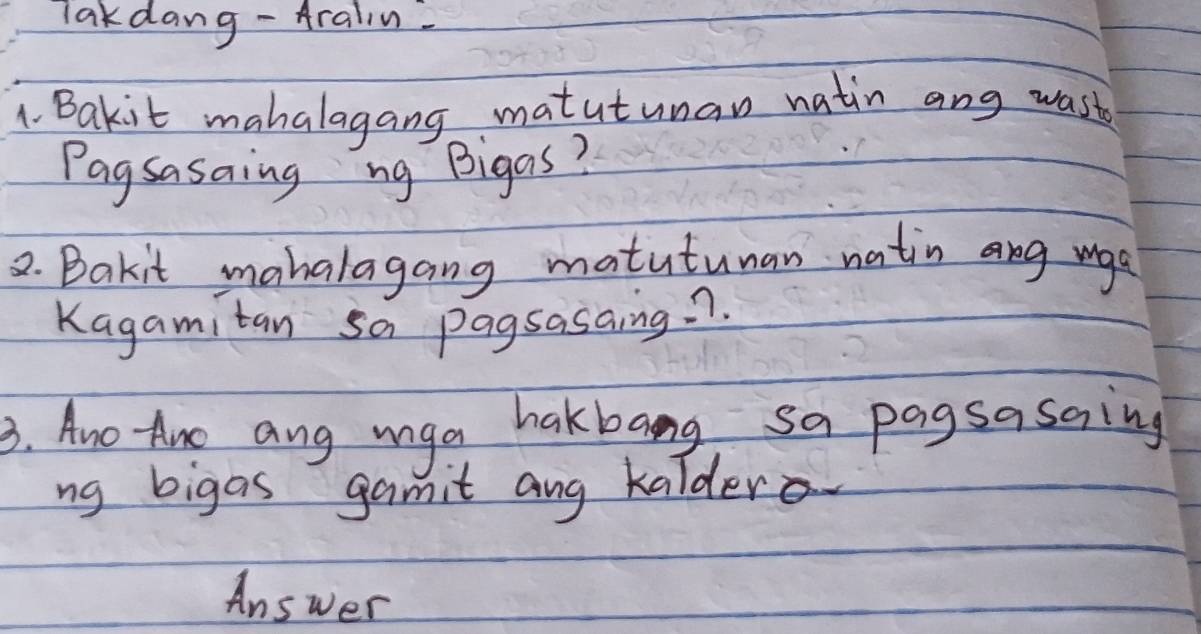 Takdang-Aralin-
1. Bakit mahalagang matutunan natin ang wasto
Pagsasaing ng Bigas?
2. Bakit mahalagang matutunan natin ang mga
Kagamitan sa pagsasaing-?.
3. Ano-Ano ang mga hakbang sa pagsasaing
ng bigas gamit ang kaldero-
Answer